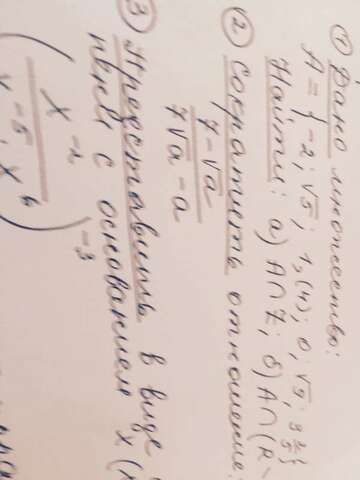 ① Дано множество:
A = {-2; √5; 1,(4); 0; √9; 3 2/5}
Найти: а) A∩Z; б) A∩(R\
② Сократить отношение:
7-√a / 7√a - a
③ Представить в виде
с основанием x (
(x⁻² / x⁻⁵ · x⁶)⁻³